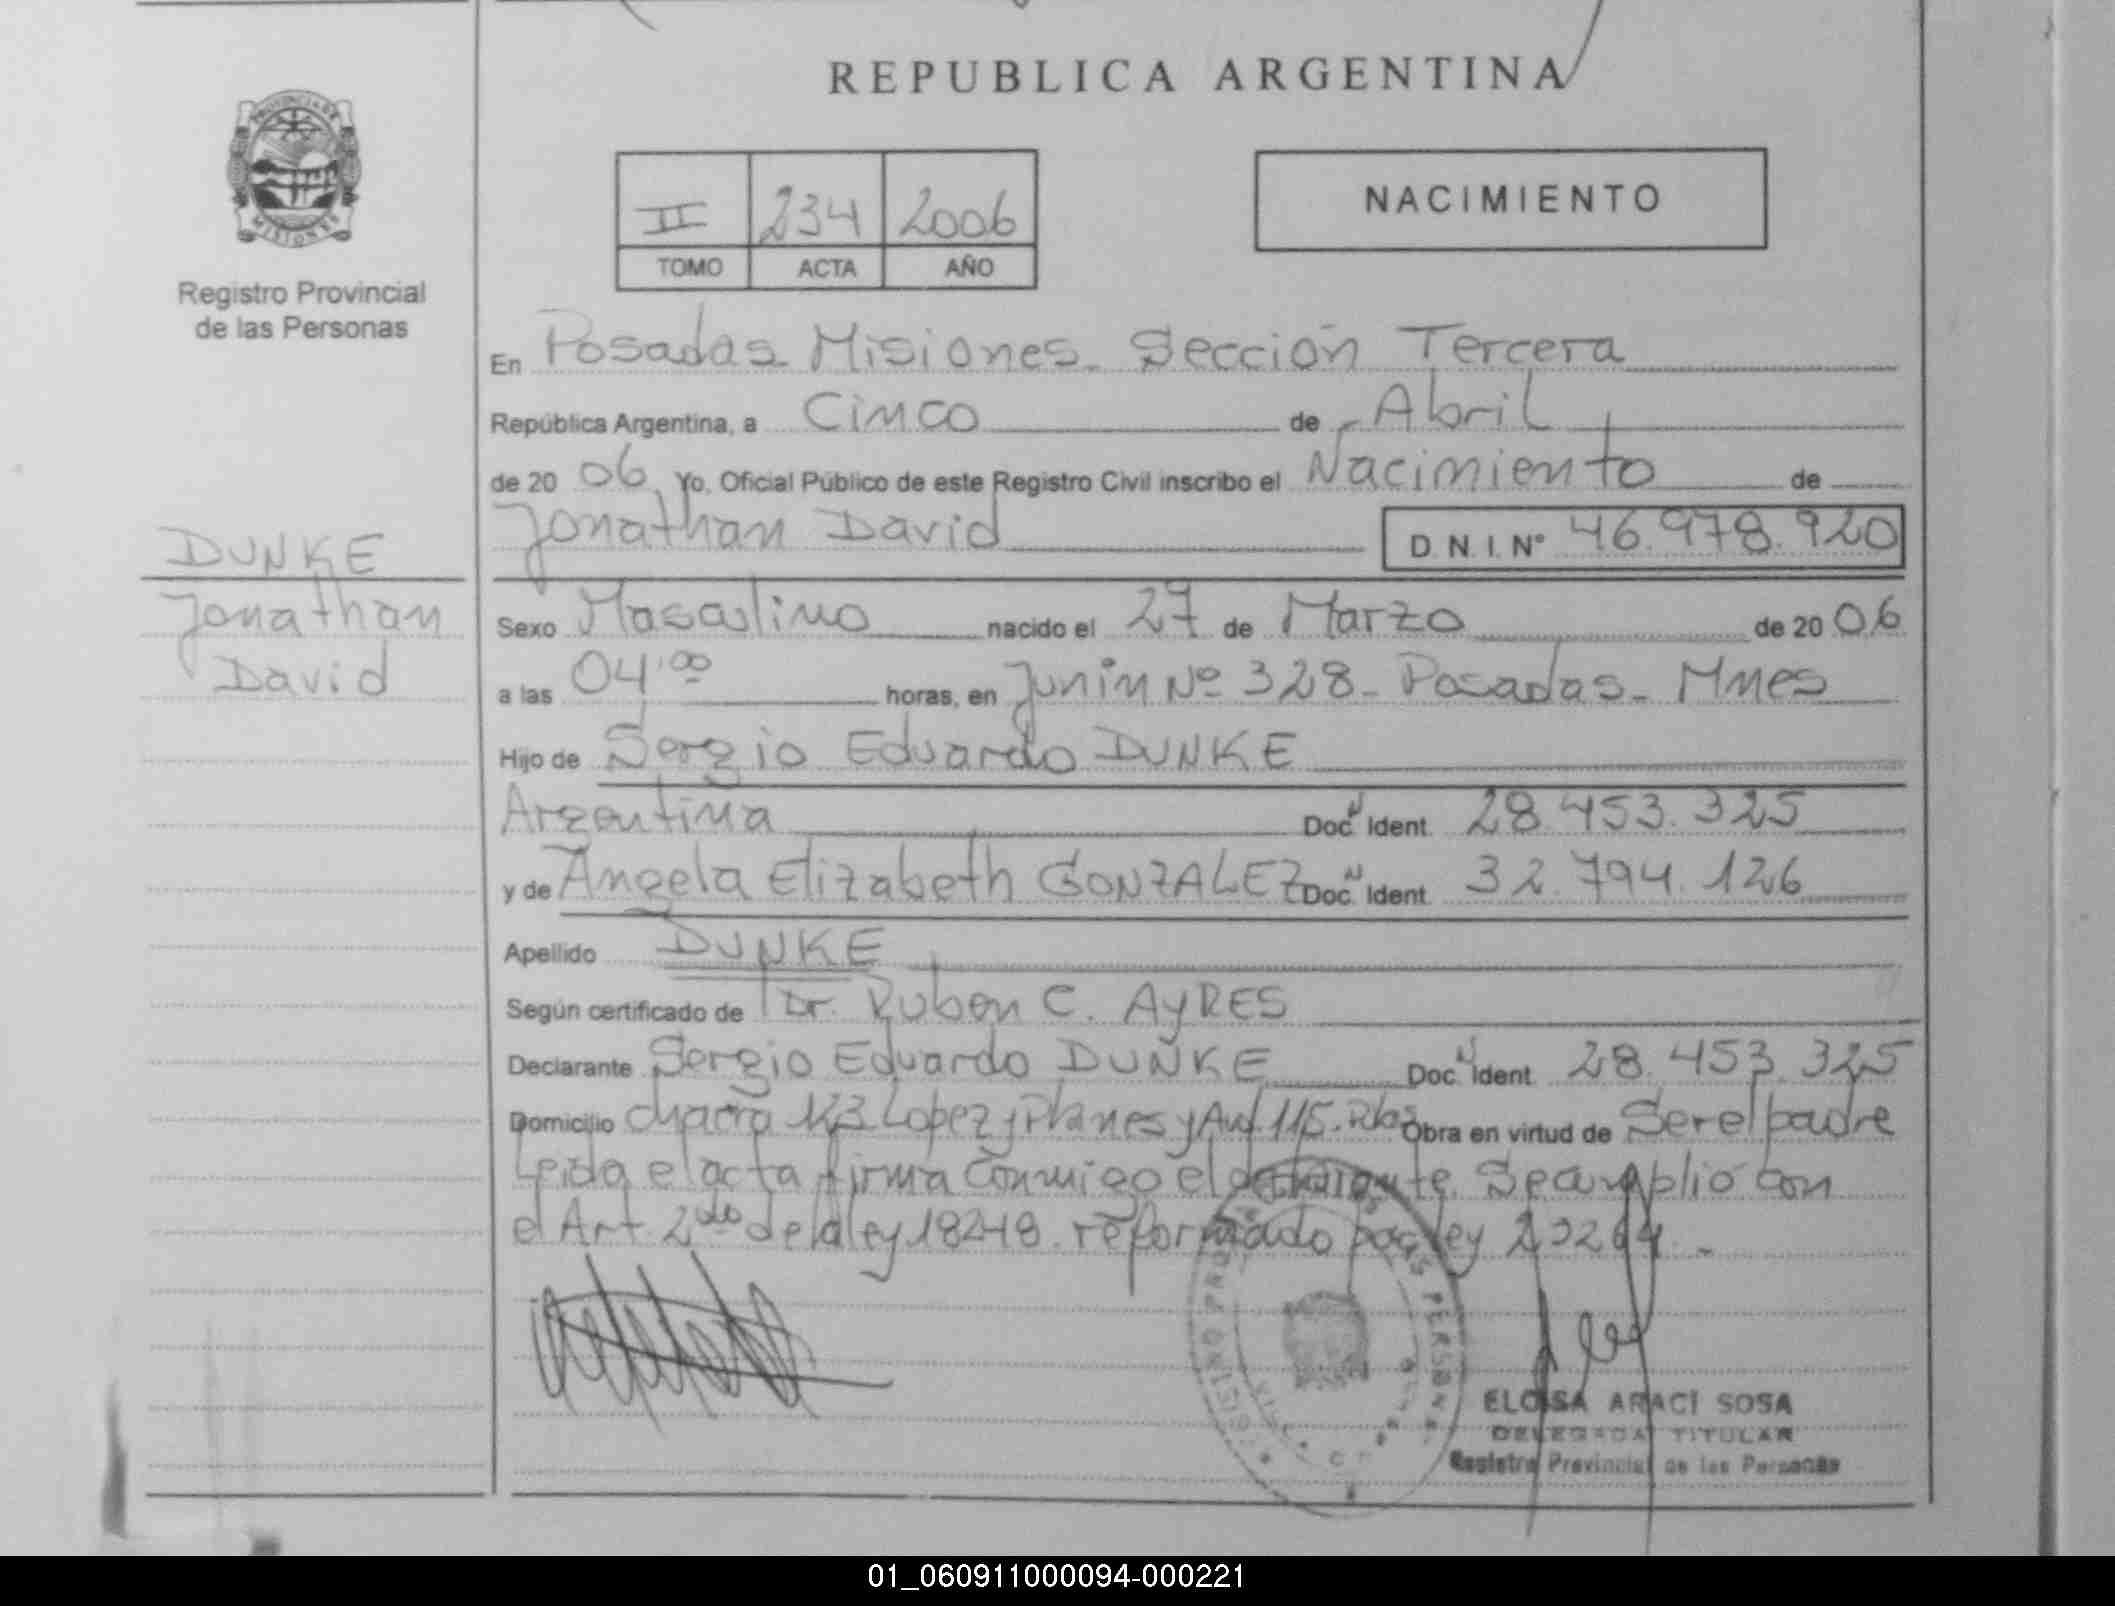 REPUBLICA ARGENTINA
PROVINCIA DE
MISIONES
Registro Provincial
de las Personas
II 234 2006
TOMO ACTA AÑO
NACIMIENTO
En Posadas Misiones. Sección Tercera
República Argentina, a Cinco de Abril
de 20 06 Yo, Oficial Público de este Registro Civil inscribo el Nacimiento de
Jonathan David D.N.I. Nº 46.978.920
DUNKE
Jonathan
David
Sexo Masculino nacido el 27 de Marzo de 20 06
a las 04,00 horas, en Junín Nº 328 - Posadas - Mnes
Hijo de Sergio Eduardo DUNKE
Argentina Doc. Ident. 28.453.325
y de Angela Elizabeth GONZALEZ Doc. Ident. 32.794.126
Apellido DUNKE
Según certificado de Dr. Ruben C. AYRES
Declarante Sergio Eduardo DUNKE Doc. Ident. 28.453.325
Domicilio chacra Lopez y Planes y Av. 115. Obra en virtud de Ser el padre
Leida el acta firma Conmigo el declarante. Se cumplió con
el Art. 2do de la ley 18248 reformado por ley
ELOISA ARACÍ SOSA
DELEGADA TITULAR
Registro Provincial de las Personas
01_060911000094-000221